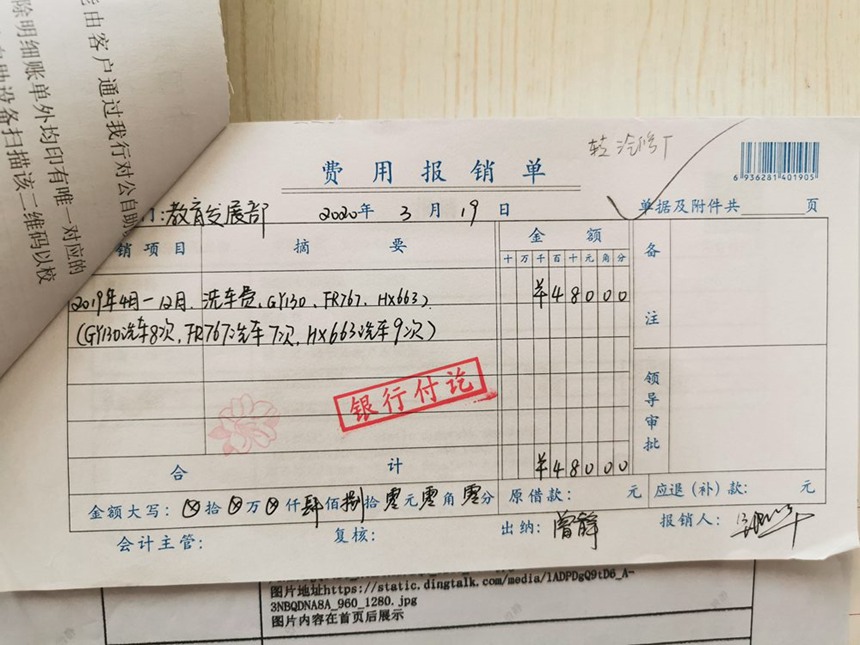 能由客户通过我行对公自助
除明细账单外均印有唯一对应的
自助设备扫描该二维码以校
转 汽修厂
费用报销单
6 936281 401905
门:教育发展部 2020年 3月 19日 单据及附件共 页
销项目 摘要 金额 备注
十万千百十元角分
2019年4月-12月 洗车费,GY130、FR767、HX663) ¥48000
(GY130洗车8次,FR767洗车7次,HX663洗车9次)
银行付讫
领导审批
合计 ¥48000
金额大写:⊗拾⊗万⊗仟肆佰捌拾零元零角零分 原借款: 元 应退(补)款: 元
会计主管: 复核: 出纳:曾静 报销人:
图片地址https://static.dingtalk.com/media/lADPDgQ9tD6_A-
3NBQDNA8A_960_1280.jpg
图片内容在首页后展示